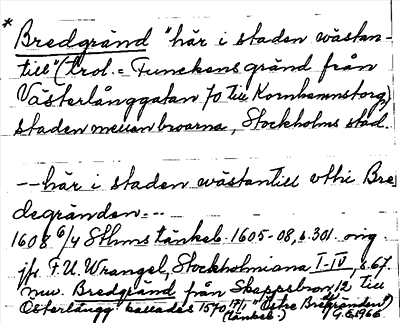 * Bredgränd "här i staden wästan-
till" (trol. = Funckens gränd från
Västerlånggatan 70 till Kornhamnstorg)
staden mellan broarna, Stockholms stad.
--här i staden wästantill vthi Bre
degränden---
1608 6/4 Sthms tänkeb. 1605-08, s. 301. orig
jfr. F.U. Wrangel, Stockholmiana I-IV, s. 67.
nuv. Bredgränd från Skeppsbron 12 till
Österlångg. kallades 1570 17/1 "Östre Bredgränden"
(tänkeb.) 4.6.1966